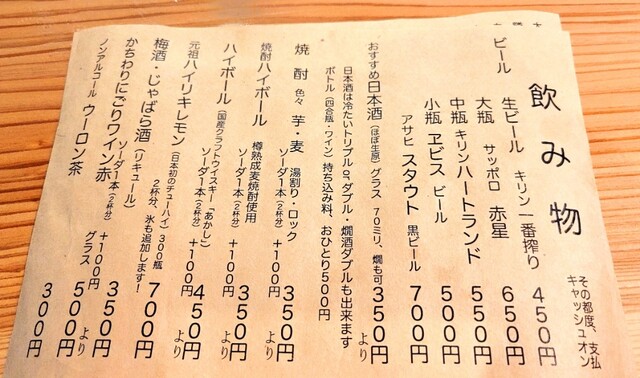 飲み物
その都度、支払
キャッシュオン
ビール
生ビール キリン 一番搾り 450円
大瓶 サッポロ 赤星 650円
中瓶 キリンハートランド 550円
小瓶 ヱビス ビール 500円
アサヒ スタウト 黒ビール 700円
おすすめ日本酒(ほぼ生原)グラス 70ミリ、燗も可 350円より
日本酒は冷たいトリプルorダブル・燗酒ダブルも出来ます
ボトル(四合瓶・ワイン)持ち込み料、おひとり500円
焼酎 色々 芋・麦 湯割り・ロック 350円より
ソーダ1本(2杯分)+100円
焼酎ハイボール 樽熟成麦焼酎使用 350円
ソーダ1本(2杯分)+100円
ハイボール(国産クラフトウイスキー「あかし」) 450円より
ソーダ1本(2杯分)+100円
元祖ハイリキレモン(日本初のチューハイ)300瓶 350円より
2杯分、氷も追加します!
梅酒・じゃばら酒(リキュール) 700円
ソーダ1本(2杯分)+100円
かちわりにごりワイン赤 グラス 500円より
ノンアルコール ウーロン茶 300円